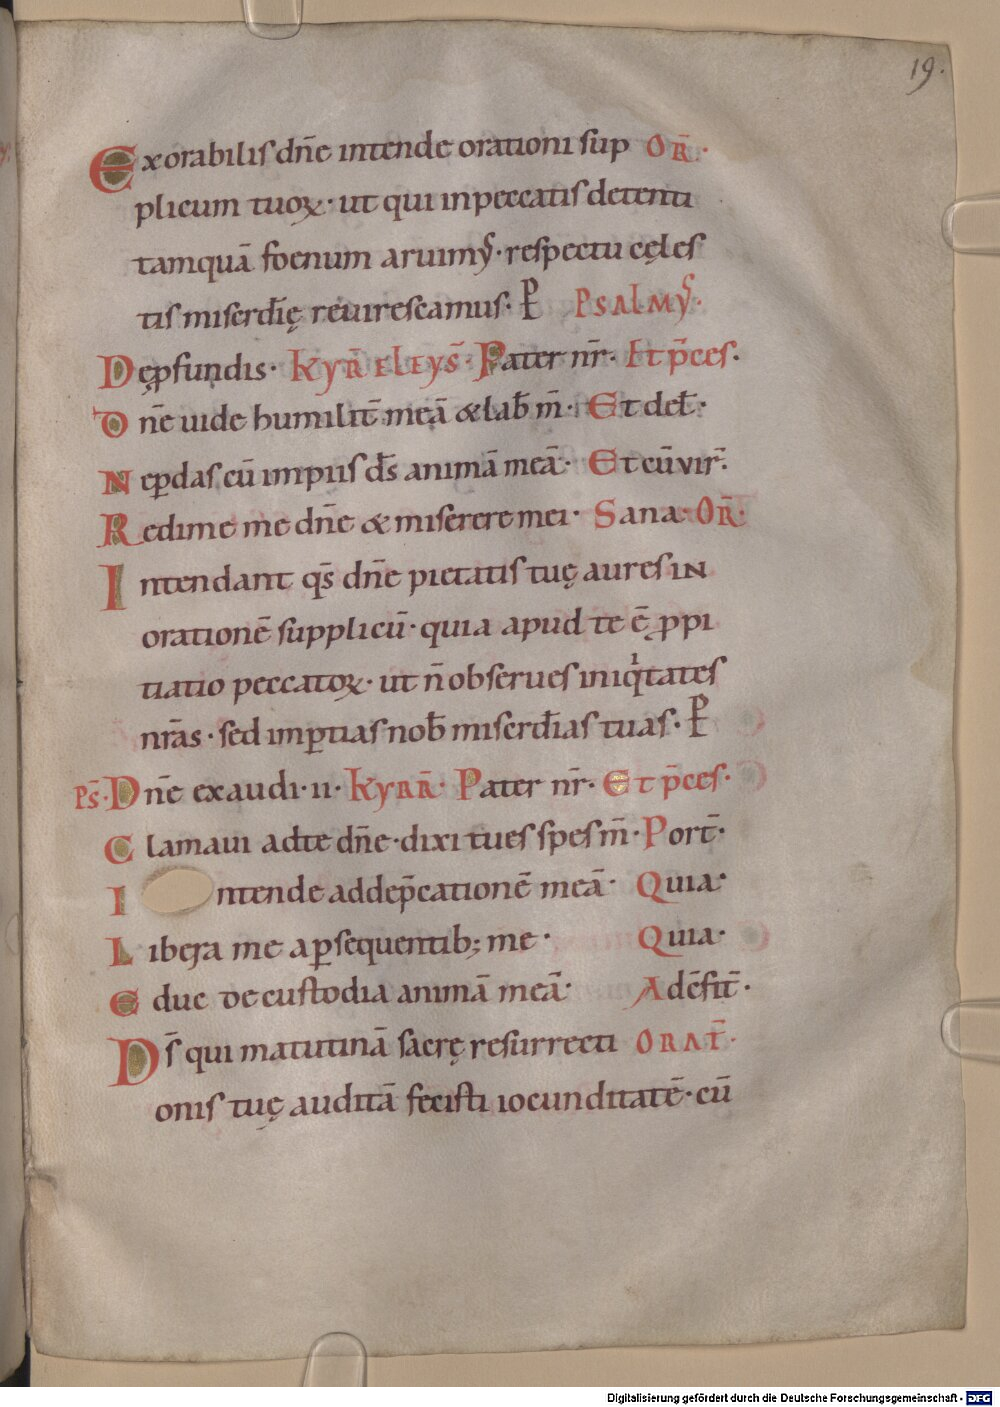 19.
Exorabilis dñe intende orationi sup OR̄.
plicum tuoꝝ· ut qui inpeccatis detenti
tamquā foenum aruimꝰ· respectu cęles
tis miserdīę reuirescamus· P̄ Psalmꝰ.
Dęꝓfundis· Kyr̄ eleys̄· Pater nr̄· Et p̄ces·
Dñe uide humilit̄ meā & lab̄ m̄· Et del̄·
Neꝑdas cū impiis ds̄ animā meā· Et cū vir̄.
Redime me dñe & miserere mei· Sana· OR̄·
Intendant qs̄ dñe pietatis tuę aures in
orationē supplicū· quia apud te ē ꝓpi
tiatio peccatoꝝ· ut n̄ obserues iniqͥtates
nr̄as· sed imꝑtias nob̄ miserdīas tuas· P̄
Ps̄· Dñe exaudi· ii· Kyrr̄· Pater nr̄· Et p̄ces·
Clamaui adte dñe· dixi tu es spes m̄· Port̄·
Intende addep̄cationē meā· Quia·
Libera me aꝑsequentib; me· Quia·
Educ de custodia animā meā· Adēsit̄·
Ds̄ qui matutinā sacrę resurrecti ORAT̄·
onis tuę auditā fecisti iocunditatē· cū
Digitalisierung gefördert durch die Deutsche Forschungsgemeinschaft - DFG